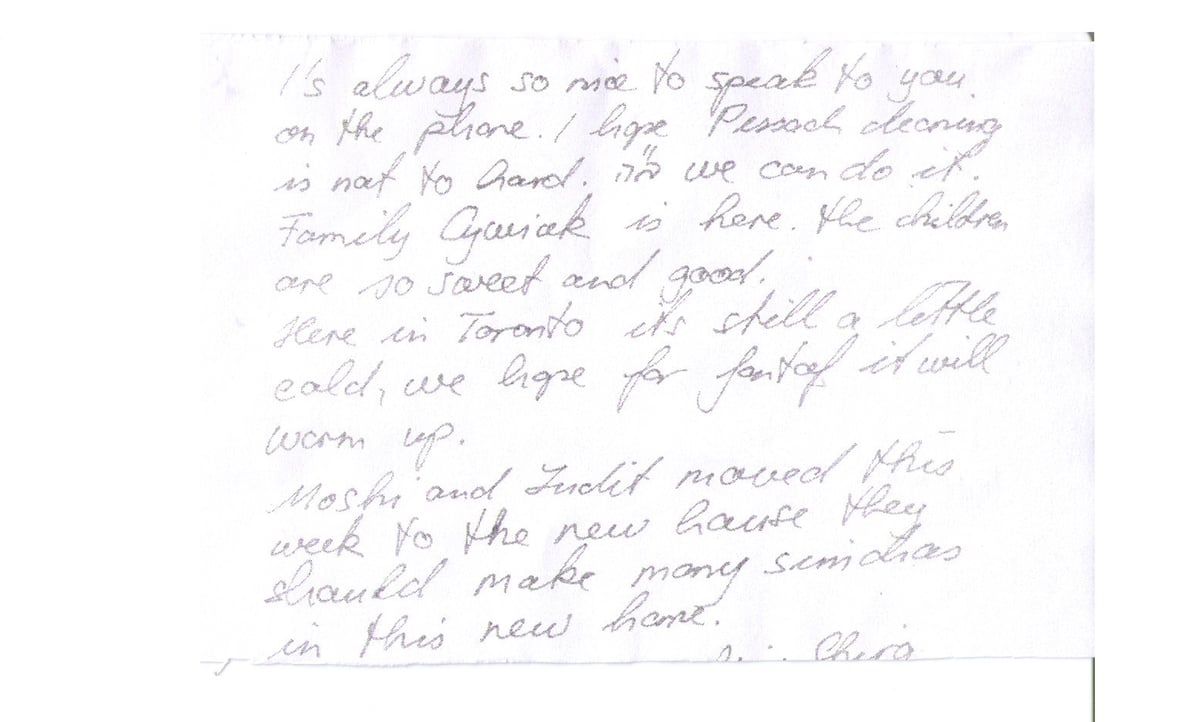 I's always so nice to speak to you
on the phone. I hope Pessach cleaning
is not to hard. we can do it.
Family Cywiak is here. the children
are so sweet and good.
Here in Toronto its still a little
cold, we hope for jontof it will
warm up.
Moshi and Judit moved this
week to the new house they
should make many simchas
in this new home.